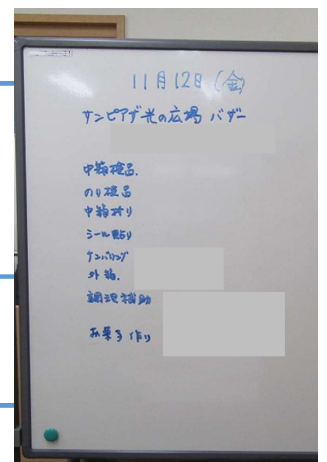 11月12日(金)
サンピアザ光の広場 バザー
中箱検品.
のり検品
中箱折り
シール貼り
ナンバリング
外箱.
調理補助
お菓子作り